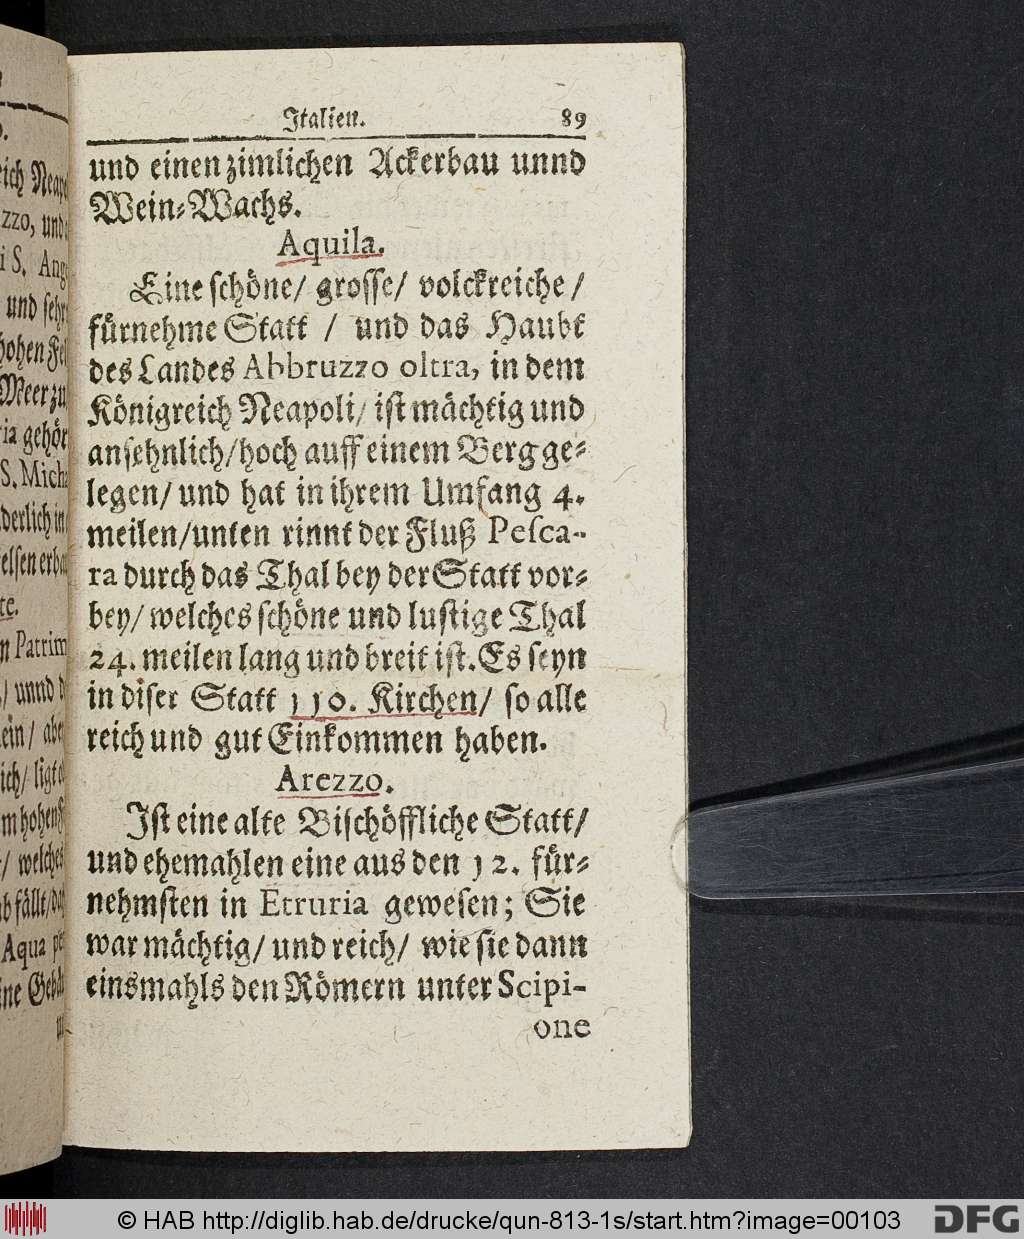 Italien. 89
und einen zimlichen Ackerbau unnd
Wein-Wachs.
Aquila.
Eine schöne/ grosse/ volckreiche/
fürnehme Statt / und das Haubt
des Landes Abbruzzo oltra, in dem
Königreich Neapoli/ ist mächtig und
ansehnlich/ hoch auff einem Berg ge-
legen/ und hat in ihrem Umfang 4.
meilen/ unten rinnt der Fluß Pesca-
ra durch das Thal bey der Statt vor-
bey/ welches schöne und lustige Thal
24. meilen lang und breit ist. Es seyn
in diser Statt 110. Kirchen/ so alle
reich und gut Einkommen haben.
Arezzo.
Ist eine alte Bischöffliche Statt/
und ehemahlen eine aus den 12. für-
nehmsten in Etruria gewesen; Sie
war mächtig/ und reich/ wie sie dann
einsmahls den Römern unter Scipi-
one
© HAB http://diglib.hab.de/drucke/qun-813-1s/start.htm?image=00103
DFG